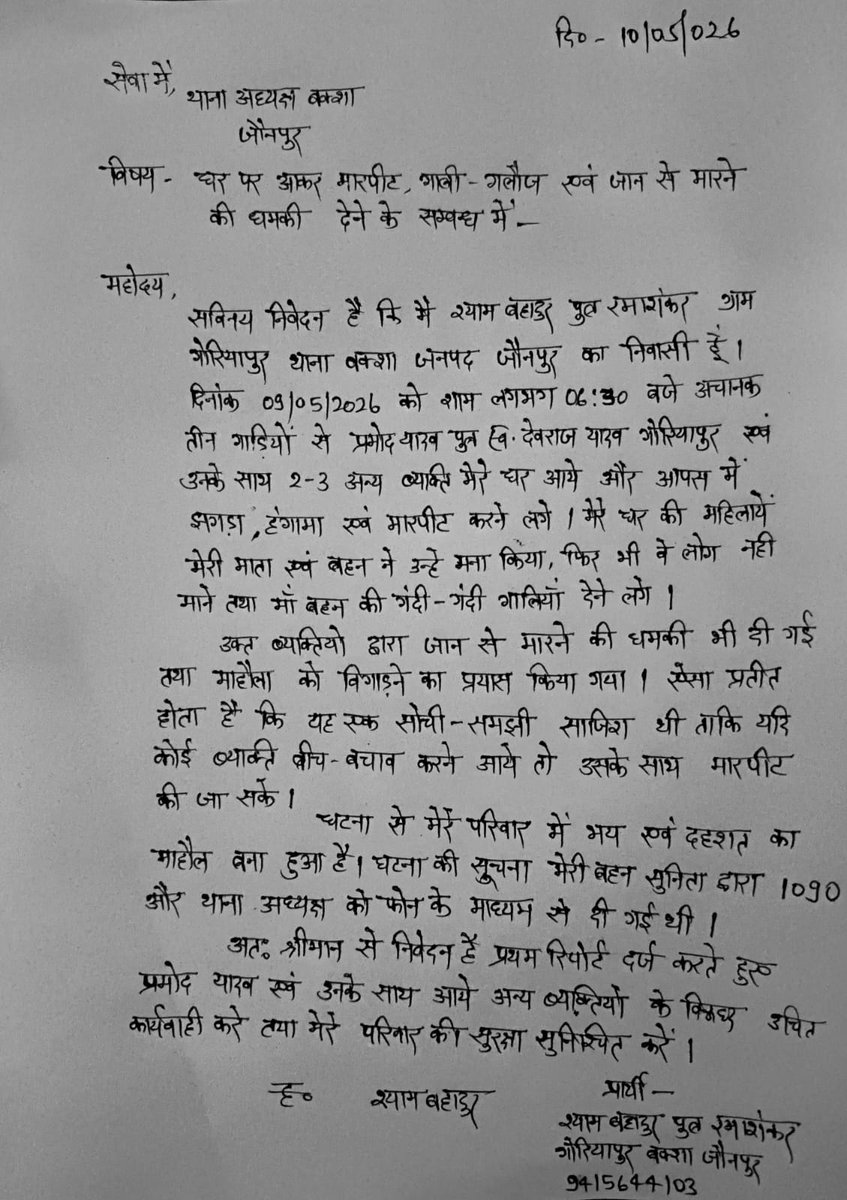 दि० - 10/05/026
सेवा में,
थाना अध्यक्ष बक्शा
जौनपुर
विषय - घर पर आकर मारपीट, गाली-गलौज एवं जान से मारने
की धमकी देने के सम्बन्ध में -
महोदय,
सविनय निवेदन है कि मै श्याम बहादुर पुत्र रमाशंकर ग्राम
गोरियापुर थाना बक्शा जनपद जौनपुर का निवासी हूँ।
दिनांक 09/05/2026 को शाम लगभग 06:30 बजे अचानक
तीन गाड़ियों से प्रमोद यादव पुत्र स्व. देवराज यादव गोरियापुर एवं
उनके साथ 2-3 अन्य व्यक्ति मेरे घर आये और आपस में
झगड़ा, हंगामा एवं मारपीट करने लगे। मेरे घर की महिलायें
मेरी माता एवं बहन ने उन्हे मना किया, फिर भी वे लोग नही
माने तथा माँ बहन की गंदी-गंदी गालियाँ देने लगे।
उक्त व्यक्तियो द्वारा जान से मारने की धमकी भी दी गई
तथा माहौल को बिगाड़ने का प्रयास किया गया। ऐसा प्रतीत
होता है कि यह एक सोची-समझी साजिश थी ताकि यदि
कोई व्यक्ति बीच-बचाव करने आये तो उसके साथ मारपीट
की जा सके।
घटना से मेरे परिवार में भय एवं दहशत का
माहौल बना हुआ है। घटना की सूचना मेरी बहन सुनिता द्वारा 1090
और थाना अध्यक्ष को फोन के माध्यम से दी गई थी।
अतः श्रीमान से निवेदन है प्रथम रिपोर्ट दर्ज करते हुए
प्रमोद यादव एवं उनके साथ आये अन्य व्यक्तियो के विरूद्ध उचित
कार्यवाही करे तथा मेरे परिवार की सुरक्षा सुनिश्चित करें।
ह० श्याम बहादुर
प्रार्थी -
श्याम बहादुर पुत्र रमाशंकर
गोरियापुर बक्शा जौनपुर
9415644103